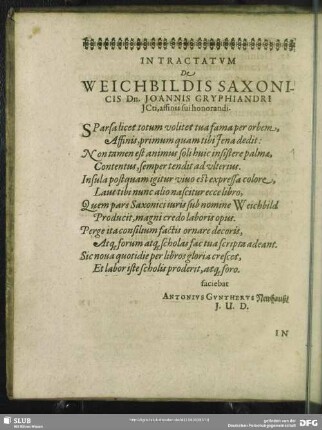 IN TRACTATVM
De
WEICHBILDIS SAXONI-
CIS Dn. JOANNIS GRYPHIANDRI
JCti, affinis sui honorandi.
SParsa licet totum volitet tua fama per orbem,
Affinis, primum quam tibi Jena dedit:
Non tamen est animus soli huic insistere palmæ,
Contentus, semper tendit ad vlterius.
Insula postquam igitur vivo est expressa colore,
Laus tibi nunc alio nascitur ecce libro,
Quem pars Saxonici iuris sub nomine Weichbild
Producit, magni credo laboris opus.
Perge ita consilium factis ornare decoris,
Atq; forum atq; scholas fac tua scripta adeant.
Sic nova quotidie per libros gloria crescet,
Et labor iste scholis proderit, atq; foro.
faciebat
ANTONIVS GVNTHERVS
J. U. D.
IN
SLUB
Wir führen Wissen.
gefördert von der
Deutschen Forschungsgemeinschaft
DFG